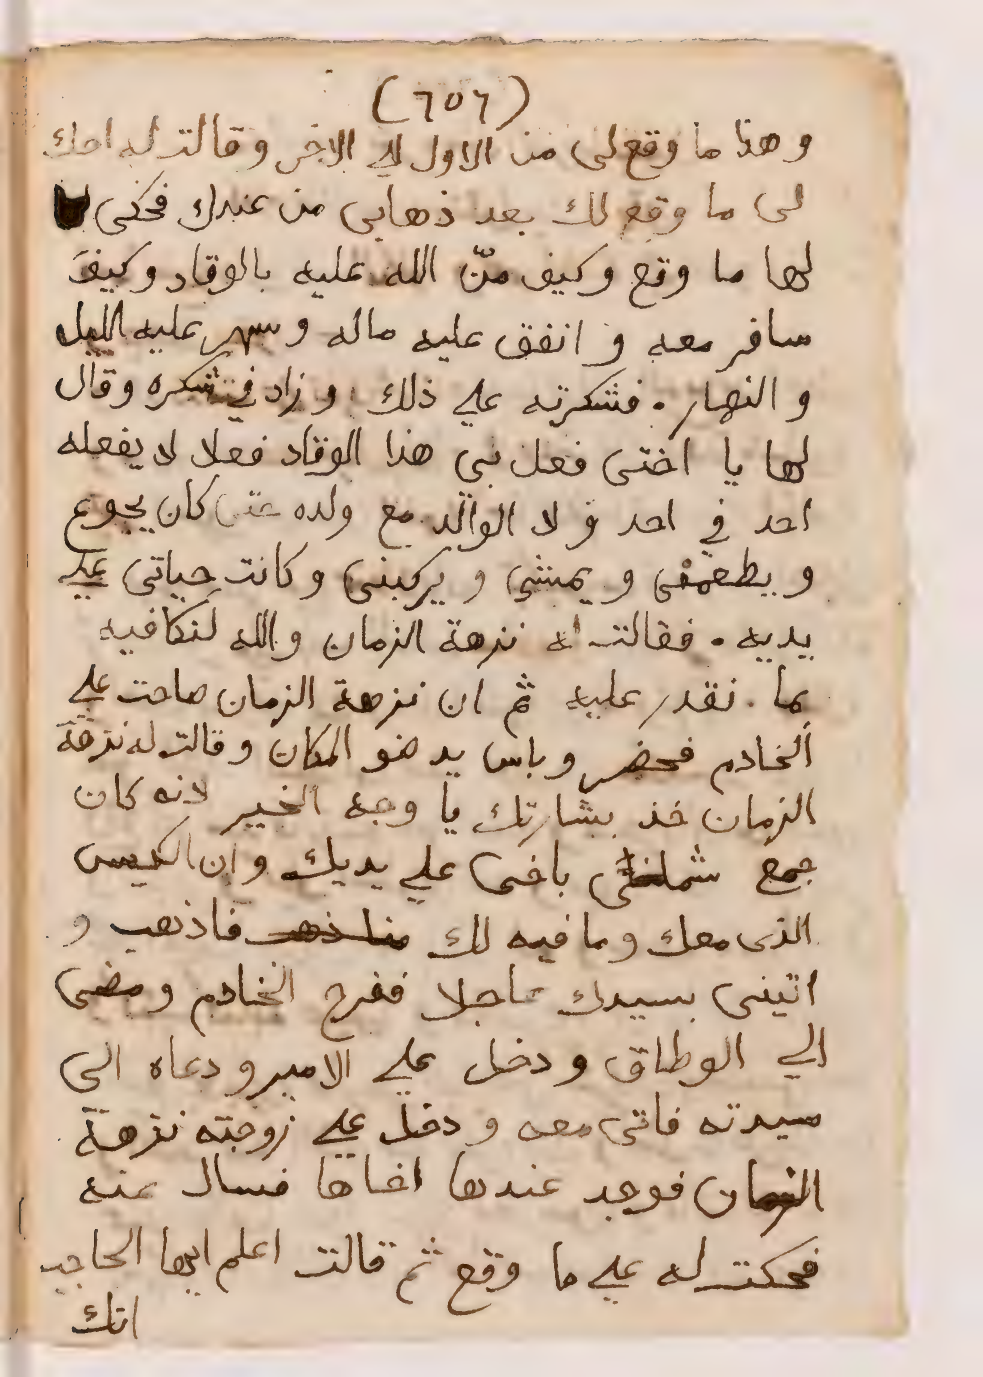 (٦٥٦)
وهذا ما وقع لى من الاول الي الاخر وقالت له احك
لى ما وقع لك بعد ذهابى من عندك فحكى
لها ما وقع وكيف منّ الله عليه بالوقاد وكيف
سافر معه و انفق عليه ماله وسهر عليه الليل
و النهار. فشكرته علي ذلك و زاد في شكره وقال
لها يا اختى فعل بى هذا الوقاد فعلا لا يفعله
احد في احد و لا الوالد مع ولده حتى كان يجوع
و يطعمنى و يمشي و يركبنى وكانت حياتى علي
يديه. فقالت له نزهة الزمان والله لنكافيه
بما نقدر عليه ثم ان نزهة الزمان صاحت علي
الخادم فحضر وباس يد ضو المكان وقالت له نزهة
الزمان خذ بشارتك يا وجه الخير لانه كان
جمع شملى باخى علي يديك وان الكيس
الذى معك وما فيه لك فاذهب و
اتينى بسيدك عاجلا ففرح الخادم ومضى
الي الوطاق ودخل علي الامير و دعاه الى
سيدته فاتى معه و دخل علي زوجته نزهة
الزمان فوجد عندها اخاها فسال عنه
فحكت له علي ما وقع ثم قالت اعلم ايها الحاجب
انك